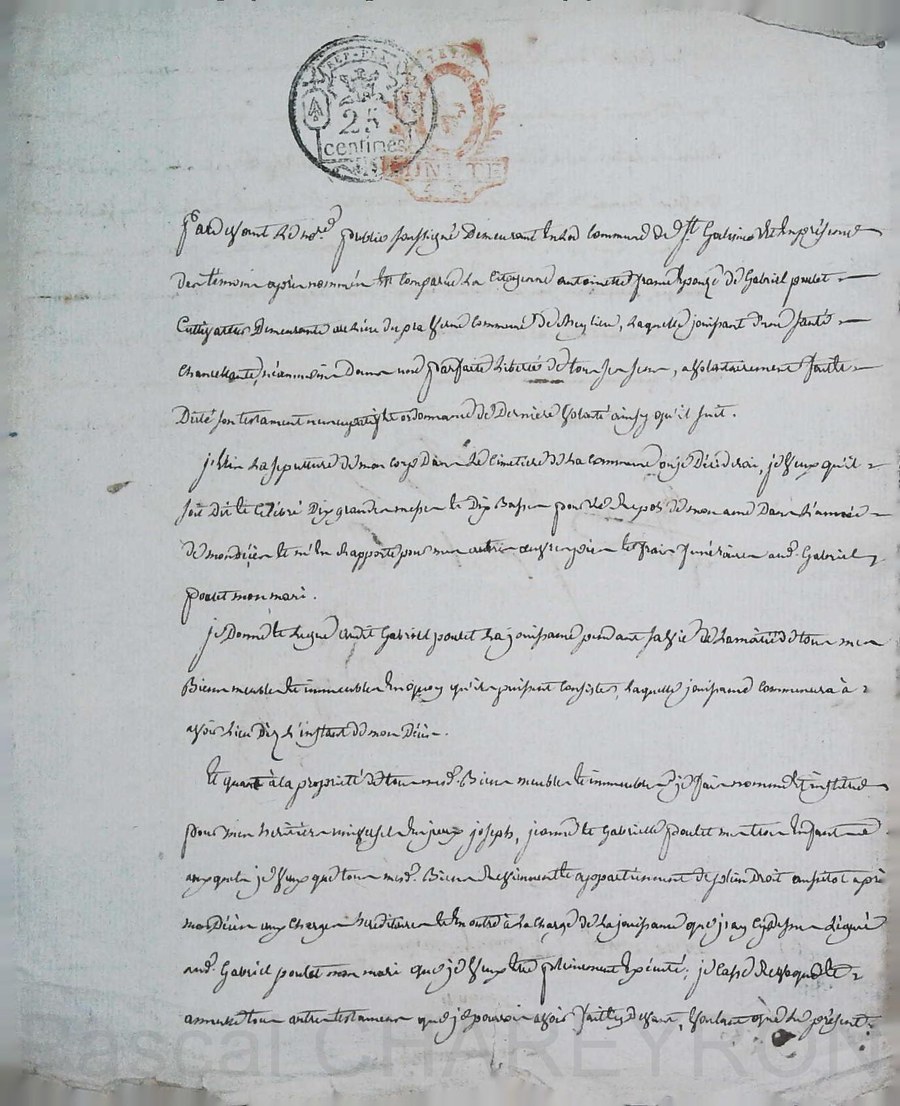 REP. FRA.
25
centimes
Par devant le no.re public soussigné demeurant en la commune de St. Galmier et en présence
des témoins après nommés est comparue la citoyenne antoinette épouze de Gabriel poulet
Cultivatrice demeurante au lieu du commune de laquelle jouissant d'une santé
chancellante, néanmoins dans une parfaite liberté de tous ses sens, a volontairement fait et
Dicté son testament nuncupatif et ordonnance de dernière volonté ainsy qu'il suit.
j'élis la sepulture de mon corps dans le cimetiere de la commune ou je décéderai, je veux qu'il
soit dit et célébré dix grandes messes et dix basses pour le repos de mon ame dans l'année
de mon décès et m'en rapporte pour mes autres œuvres pies et frais funéraires aud. Gabriel
poulet mon mari.
je donne et legue audit Gabriel poulet la jouissance pendant sa vie de la moitié de tous mes
Biens meubles et immeubles en quoy qu'ils puissent consister, laquelle jouissance commencera à
avoir lieu dèz l'instant de mon décès.
Et quant à la propriété de tous mesd. Biens meubles et immeubles je fais nomme et institue
pour mes héritiers universels joseph, jeanne et Gabrielle poulet mes trois enfants
auxquels je veux que tous mesd. Biens reviennent et appartiennent de plein droit aussitot après
mon décès aux charges héréditaires et en outre à la charge de la jouissance que j'ai cy dessus léguée
aud. Gabriel poulet mon mari que je veux être pleinement exécuté; je casse revoque et
annulle tous autres testaments que je pourrois avoir fait cy devant, voulant que le présent
Pascal CHAREYRON